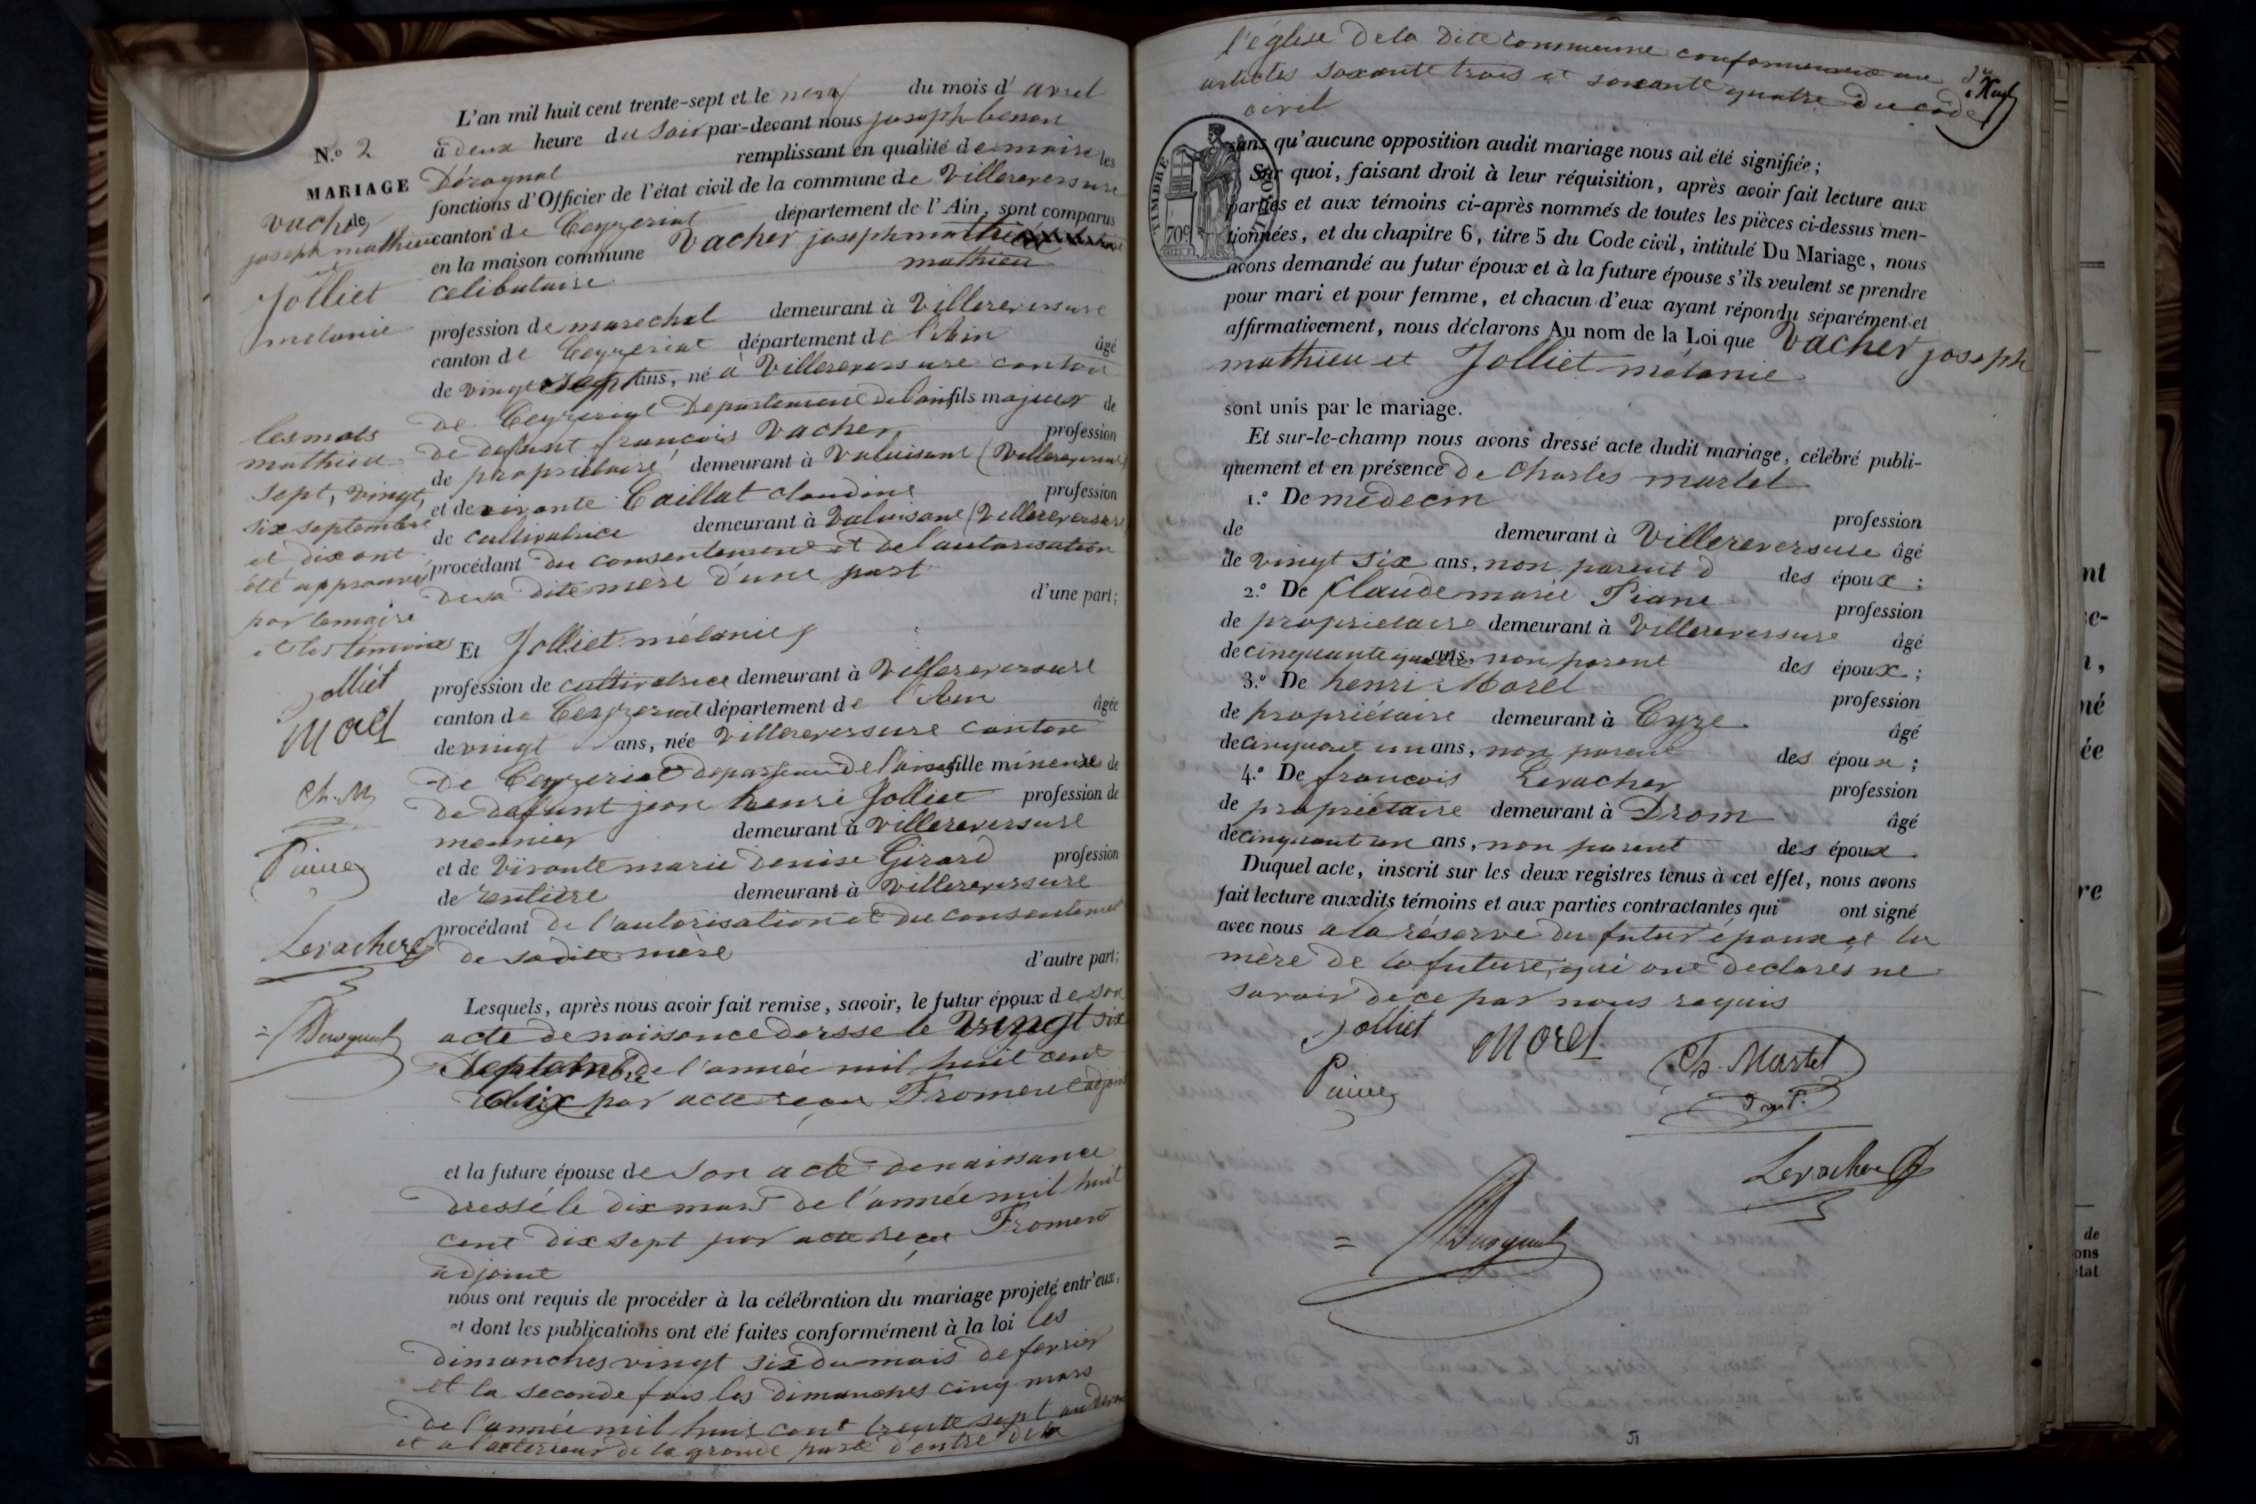 L'an mil huit cent trente-sept et le neuf du mois d'avril
N.o 2 à deux heure du soir par-devant nous joseph benoit
MARIAGE Déragnat remplissant en qualité de maire les
de fonctions d'Officier de l'état civil de la commune de Villereversure
Vacher
joseph mathieu
et
Jolliet
melanie
canton de Ceyzeriat département de l'Ain, sont comparus
en la maison commune Vacher joseph
mathieu
celibataire
profession de marechal demeurant à Villereversure
canton de Ceyzeriat département de l'Ain âgé
de vingt sept ans, né à Villereversure canton
de Ceyzeriat Departement de l'ain fils majeur de
de defunt françois Vacher profession
de propriétaire demeurant à Valuisant (Villereversure)
et de vivante Caillat claudine profession
de cultivatrice demeurant à Valuisant (Villereversure)
procédant du consentement et de l'autorisation
de sa dite mère d'une part
d'une part;
les mots
mathieu
sept, vingt,
six septembre
et dix ont
été approuvés
par le maire
et les témoins
Jolliet
Morel
Ch. M
Piane
Levacher
Et Jolliet mélanie
profession de cultivatrice demeurant à Villereversure
canton de Ceyzeriat département de l'Ain âgée
de vingt ans, née Villereversure canton
de Ceyzeriat departement de l'ain fille mineure de
de defunt jean henri Jolliet profession de
meunier demeurant à Villereversure
et de vivante marie denise Girard profession
de rentière demeurant à Villereversure
procédant de l'autorisation et du consentement
de sa dite mère
d'autre part;
Lesquels, après nous avoir fait remise, savoir, le futur époux de son
acte de naissance dressé le vingt six
Septembre de l'année mil huit cent
dix par acte reçu Froment adjoint
et la future épouse de son acte de naissance
dressé le dix mars de l'année mil huit
cent dix sept par acte reçu Froment
adjoint
nous ont requis de procéder à la célébration du mariage projeté entr'eux,
et dont les publications ont été faites conformément à la loi les
dimanches vingt six du mois de fevrier
et la seconde fois les dimanches cinq mars
de l'année mil huit cent trente sept au devant
et a l'exterieur de la grande porte d'entré de la
l'église de la dite commune conformement aux
articles soixante trois et soixante quatre du code
civil
TIMBRE ROYAL
70c
sans qu'aucune opposition audit mariage nous ait été signifiée;
Sur quoi, faisant droit à leur réquisition, après avoir fait lecture aux
parties et aux témoins ci-après nommés de toutes les pièces ci-dessus men-
tionnées, et du chapitre 6, titre 5 du Code civil, intitulé Du Mariage, nous
avons demandé au futur époux et à la future épouse s'ils veulent se prendre
pour mari et pour femme, et chacun d'eux ayant répondu séparément et
affirmativement, nous déclarons Au nom de la Loi que Vacher joseph
mathieu et Jolliet mélanie
sont unis par le mariage.
Et sur-le-champ nous avons dressé acte dudit mariage, célébré publi-
quement et en présence de Charles martel
1.o De médecin profession
de demeurant à Villereversure âgé
de vingt six ans, non parent d des époux;
2.o De Claude marie Piane profession
de propriétaire demeurant à Villereversure âgé
de cinquante quatre ans, non parent des époux;
3.o De henri Morel profession
de propriétaire demeurant à Cyze âgé
de cinquante un ans, non parent des époux;
4.o De françois Levacher profession
de propriétaire demeurant à Drom âgé
de cinquante un ans, non parent des époux.
Duquel acte, inscrit sur les deux registres tenus à cet effet, nous avons
fait lecture auxdits témoins et aux parties contractantes qui ont signé
avec nous a la réserve du futur époux et la
mère de la future, qui ont declarés ne
savoir de ce par nous requis
Jolliet Morel Ch. Martel
Piane
Levacher
nt
ce-
né
ée
re
de
ons
état